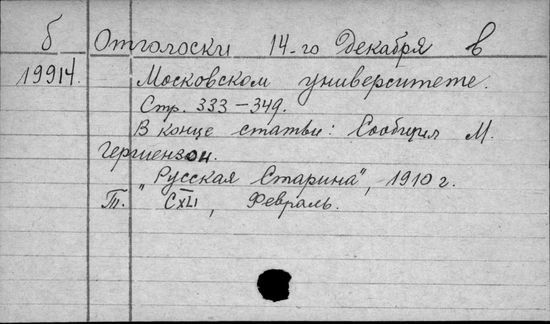 б Отголоски 14-го Декабря в
19914. Московском университете.
Стр. 333-349.
В конце статьи: Сообщил М.
Гершензон.
"Русская Старина", 1910 г.
Т. CXLI, Февраль.